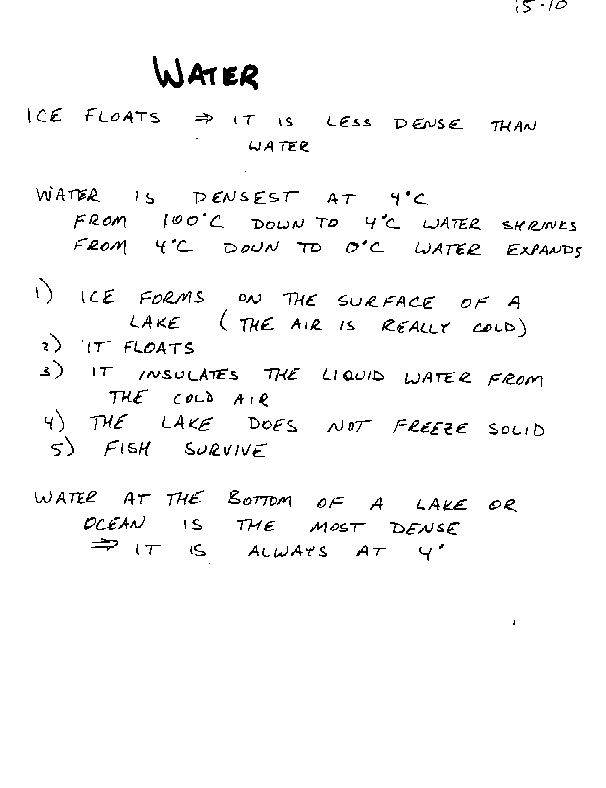 15-10
WATER
ICE FLOATS ⇒ IT IS LESS DENSE THAN
WATER
WATER IS DENSEST AT 4°C
FROM 100°C DOWN TO 4°C WATER SHRINKS
FROM 4°C DOWN TO 0°C WATER EXPANDS
1) ICE FORMS ON THE SURFACE OF A
LAKE (THE AIR IS REALLY COLD)
2) IT FLOATS
3) IT INSULATES THE LIQUID WATER FROM
THE COLD AIR
4) THE LAKE DOES NOT FREEZE SOLID
5) FISH SURVIVE
WATER AT THE BOTTOM OF A LAKE OR
OCEAN IS THE MOST DENSE
⇒ IT IS ALWAYS AT 4°